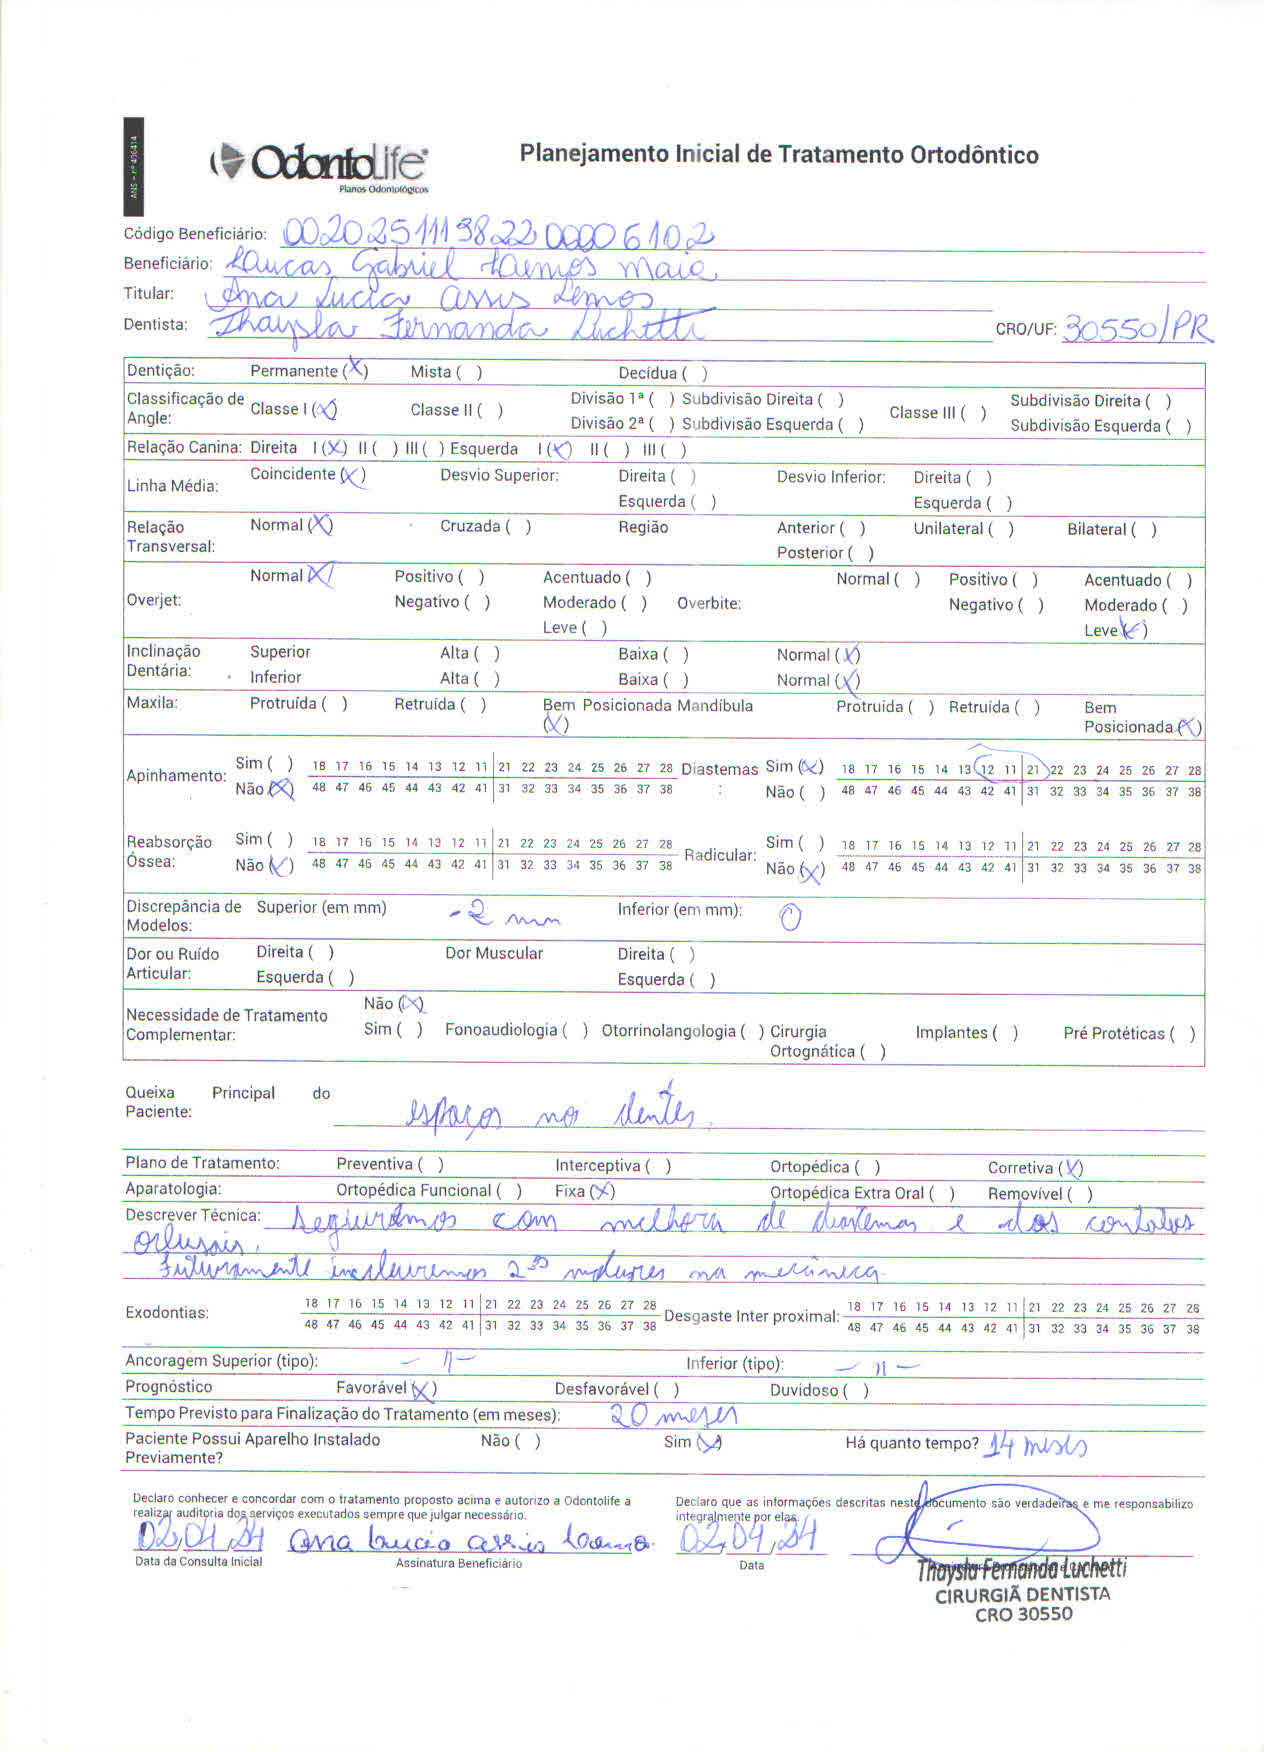 ANS - nº 496414
OdontoLife
Planos Odontológicos
Planejamento Inicial de Tratamento Ortodôntico
Código Beneficiário: 00202511138220000 6102
Beneficiário: Laucas Gabriel Laemos Maia
Titular: Ana Lucia Assis Lemos
Dentista: Thaysla Fernanda Luchetti CRO/UF: 30550/PR
Dentição: Permanente (X) Mista ( ) Decídua ( )
Classificação de Angle: Classe I (X) Classe II ( ) Divisão 1ª ( ) Subdivisão Direita ( ) Classe III ( ) Subdivisão Direita ( )
Divisão 2ª ( ) Subdivisão Esquerda ( ) Subdivisão Esquerda ( )
Relação Canina: Direita I (X) II ( ) III ( ) Esquerda I (X) II ( ) III ( )
Linha Média: Coincidente (X) Desvio Superior: Direita ( ) Desvio Inferior: Direita ( )
Esquerda ( ) Esquerda ( )
Relação Transversal: Normal (X) Cruzada ( ) Região Anterior ( ) Unilateral ( ) Bilateral ( )
Posterior ( )
Overjet: Normal (X) Positivo ( ) Acentuado ( ) Overbite: Normal ( ) Positivo ( ) Acentuado ( )
Negativo ( ) Moderado ( ) Negativo ( ) Moderado ( )
Leve ( ) Leve (X)
Inclinação Dentária: Superior Alta ( ) Baixa ( ) Normal (X)
Inferior Alta ( ) Baixa ( ) Normal (X)
Maxila: Protruída ( ) Retruída ( ) Bem Posicionada (X) Mandíbula Protruída ( ) Retruída ( ) Bem Posicionada (X)
Apinhamento: Sim ( ) 18 17 16 15 14 13 12 11 21 22 23 24 25 26 27 28 Diastemas: Sim (X) 18 17 16 15 14 13 12 11 21 22 23 24 25 26 27 28
Não (X) 48 47 46 45 44 43 42 41 31 32 33 34 35 36 37 38 Não ( ) 48 47 46 45 44 43 42 41 31 32 33 34 35 36 37 38
Reabsorção Óssea: Sim ( ) 18 17 16 15 14 13 12 11 21 22 23 24 25 26 27 28 Radicular: Sim ( ) 18 17 16 15 14 13 12 11 21 22 23 24 25 26 27 28
Não (X) 48 47 46 45 44 43 42 41 31 32 33 34 35 36 37 38 Não (X) 48 47 46 45 44 43 42 41 31 32 33 34 35 36 37 38
Discrepância de Modelos: Superior (em mm) -2 mm Inferior (em mm): 0
Dor ou Ruído Articular: Direita ( ) Dor Muscular Direita ( )
Esquerda ( ) Esquerda ( )
Necessidade de Tratamento Complementar: Não (X)
Sim ( ) Fonoaudiologia ( ) Otorrinolangologia ( ) Cirurgia Ortognática ( ) Implantes ( ) Pré Protéticas ( )
Queixa Principal do Paciente: espaços nos dentes.
Plano de Tratamento: Preventiva ( ) Interceptiva ( ) Ortopédica ( ) Corretiva (X)
Aparatologia: Ortopédica Funcional ( ) Fixa (X) Ortopédica Extra Oral ( ) Removível ( )
Descrever Técnica: Seguiremos com melhora de diastemas e dos contatos
oclusais.
Futuramente incluiremos 2ºs molares na mecânica.
Exodontias: 18 17 16 15 14 13 12 11 21 22 23 24 25 26 27 28 Desgaste Inter proximal: 18 17 16 15 14 13 12 11 21 22 23 24 25 26 27 28
48 47 46 45 44 43 42 41 31 32 33 34 35 36 37 38 48 47 46 45 44 43 42 41 31 32 33 34 35 36 37 38
Ancoragem Superior (tipo): - 11 - Inferior (tipo): - 11 -
Prognóstico Favorável (X) Desfavorável ( ) Duvidoso ( )
Tempo Previsto para Finalização do Tratamento (em meses): 20 meses
Paciente Possui Aparelho Instalado Previamente? Não ( ) Sim (X) Há quanto tempo? 14 meses
Declaro conhecer e concordar com o tratamento proposto acima e autorizo a Odontolife a
realizar auditoria dos serviços executados sempre que julgar necessário.
Declaro que as informações descritas neste documento são verdadeiras e me responsabilizo
integralmente por elas.
02,04,24 Ana Lucia Assis Lemos 02,04,24
Data da Consulta Inicial Assinatura Beneficiário Data
Thaysla Fernanda Luchetti
CIRURGIÃ DENTISTA
CRO 30550